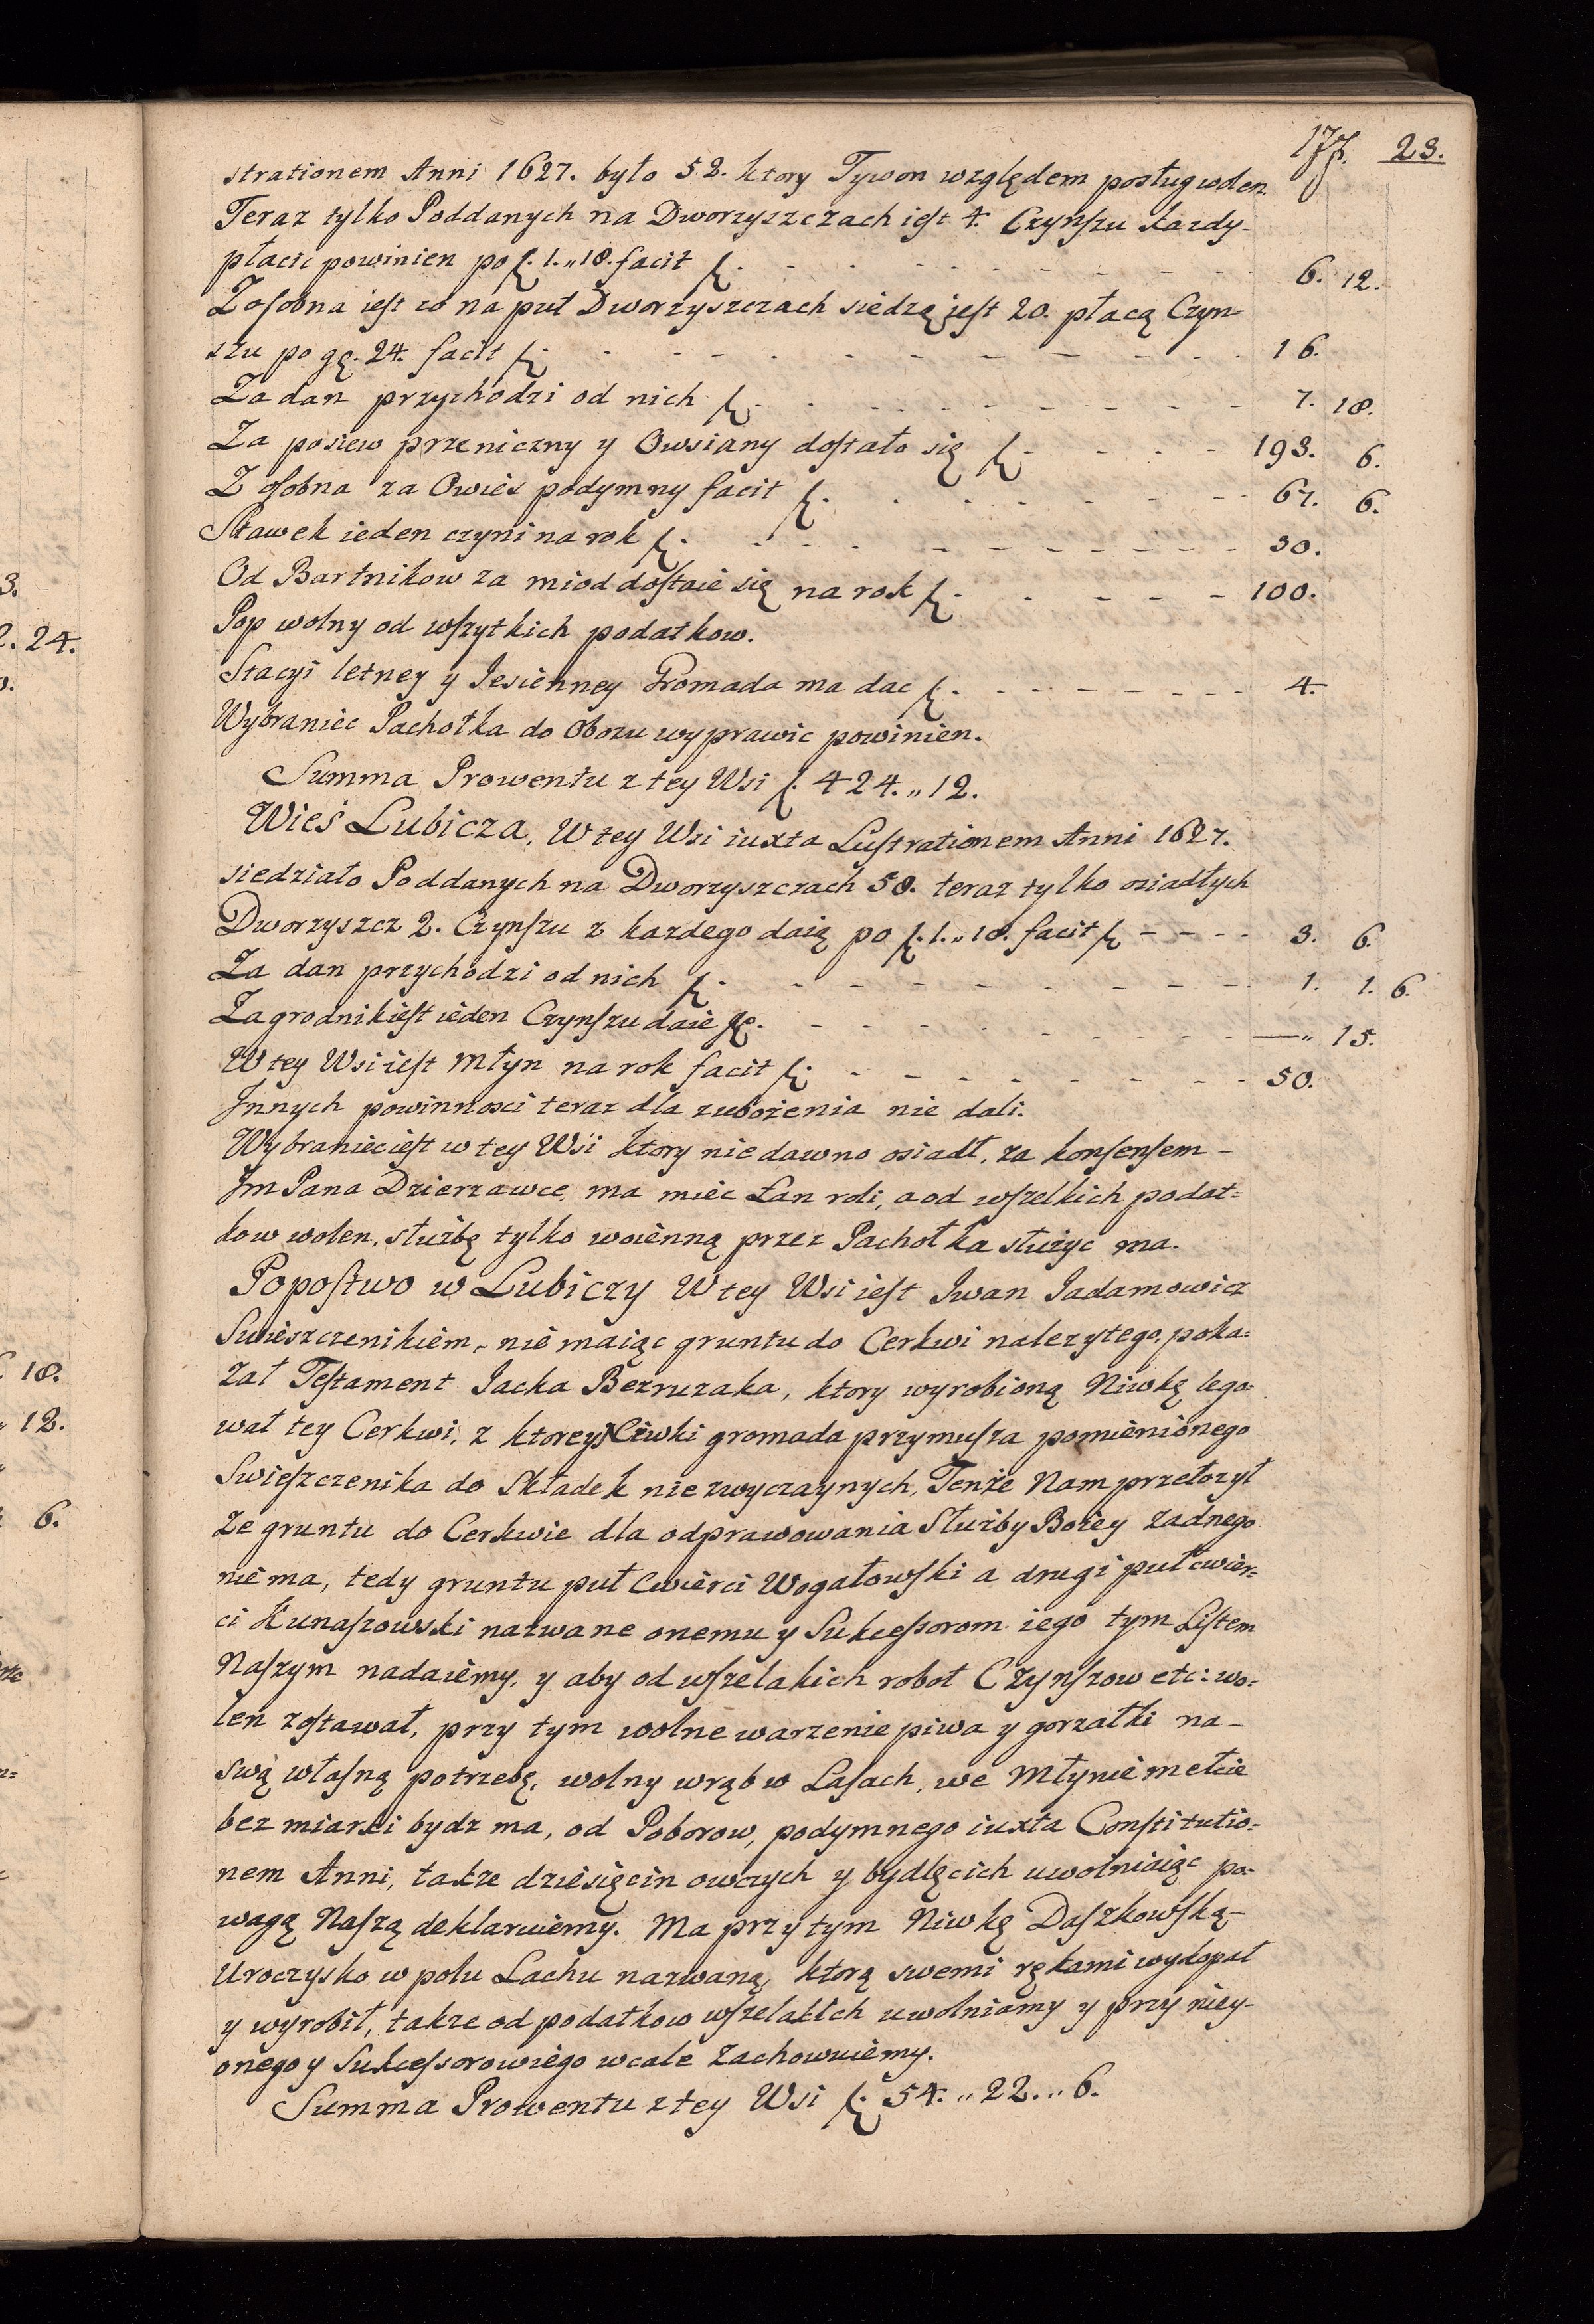 177. 23.
strationem Anni 1627. było 52. ktory Tywon względem posług wolen.
Teraz tylko Poddanych na Dworzyszczach iest 4. Czynszu kazdy-
płacić powinien po f. 1. „ 18. facit f. 6. 12.
Z osobna iest co na puł Dworzyszczach siedzą jest 20. płacą Czyn=
szu po gę. 24. facit f. 16.
Za dan przychodzi od nich f. 7. 18.
Za posiew przeniczny y Owsiany dostało się f. 193. 6.
Z osobna za Owies podymny facit f. 67. 6.
Stawek ieden czyni na rok f. 30.
Od Bartnikow za miod dostaie się na rok f. 100.
Pop wolny od wszytkich podatkow.
Stacyi letney y Iesienney Gromada ma dac f. 4.
Wybraniec Pachołka do Obozu wyprawic powinien.
Summa Prowentu z tey Wsi f. 424. „ 12.
Wieś Lubicza, W tey Wsi iuxta Lustrationem Anni 1627.
siedziało Poddanych na Dworzyszczach 58. teraz tylko osiadłych
Dworzyszcz 2. Czynszu z kazdego daią po f. 1. „ 18. facit f 3. 6.
Za dan przychodzi od nich f. 1. 1. 6.
Zagrodnik iest ieden Czynszu daie ge. — „ 15.
W tey Wsi iest Młyn na rok facit f. 50.
Innych powinnosci teraz dla zubożenia nie dali.
Wybraniec iest w tey Wsi ktory nie dawno osiadł, za konsensem -
Jm Pana Dzierzawce, ma miec Łan roli, a od wszelkich podat=
kow wolen, służbę tylko woienną przez Pachołka służyc ma.
Popostwo w Lubiczy W tey Wsi iest Iwan Jadamowicz
Swieszczenikiem, nie maiąc gruntu do Cerkwi nalezytego, poka=
zał Testament Jacka Bezruzaka, ktory wyrobioną Niwkę lego=
wał tey Cerkwi, z ktorey Niwki gromada przymusza pomienionego
Swieszczenika do Składek niezwyczaynych, Tenże Nam przełozył
ze gruntu do Cerkwie dla odprawowania Służby Bożey zadnego
nie ma, tedy gruntu puł cwierci Wogałowski a drugi puł cwier=
ci Kunaszowski nazwane onemu y Sukcessorom iego tym Listem
Naszym nadaiemy, y aby od wszelakich robot Czynszow etc: wo=
len zostawał, przy tym wolne warzenie piwa y gorzałki na -
swą własną potrzebę, wolny wrąb w Lasach, we Młynie mełcie
bez miarki bydz ma, od Poborow, podymnego iuxta Constitutio=
nem Anni, takze dziesięcin owczych y bydlęcich uwolniaiąc po=
wagą Naszą deklaruiemy. Ma przy tym Niwkę Daszkowską-
Uroczysko w polu Lachu nazwaną, ktorą swemi rękami wykopał
y wyrobił, takze od podatkow wszelakich uwolniamy y przy niey-
onego y Sukcessorow iego wcale zachowuiemy.
Summa Prowentu z tey Wsi f. 54. „ 22. „ 6.
3.
2. 24.
18.
12.
6.